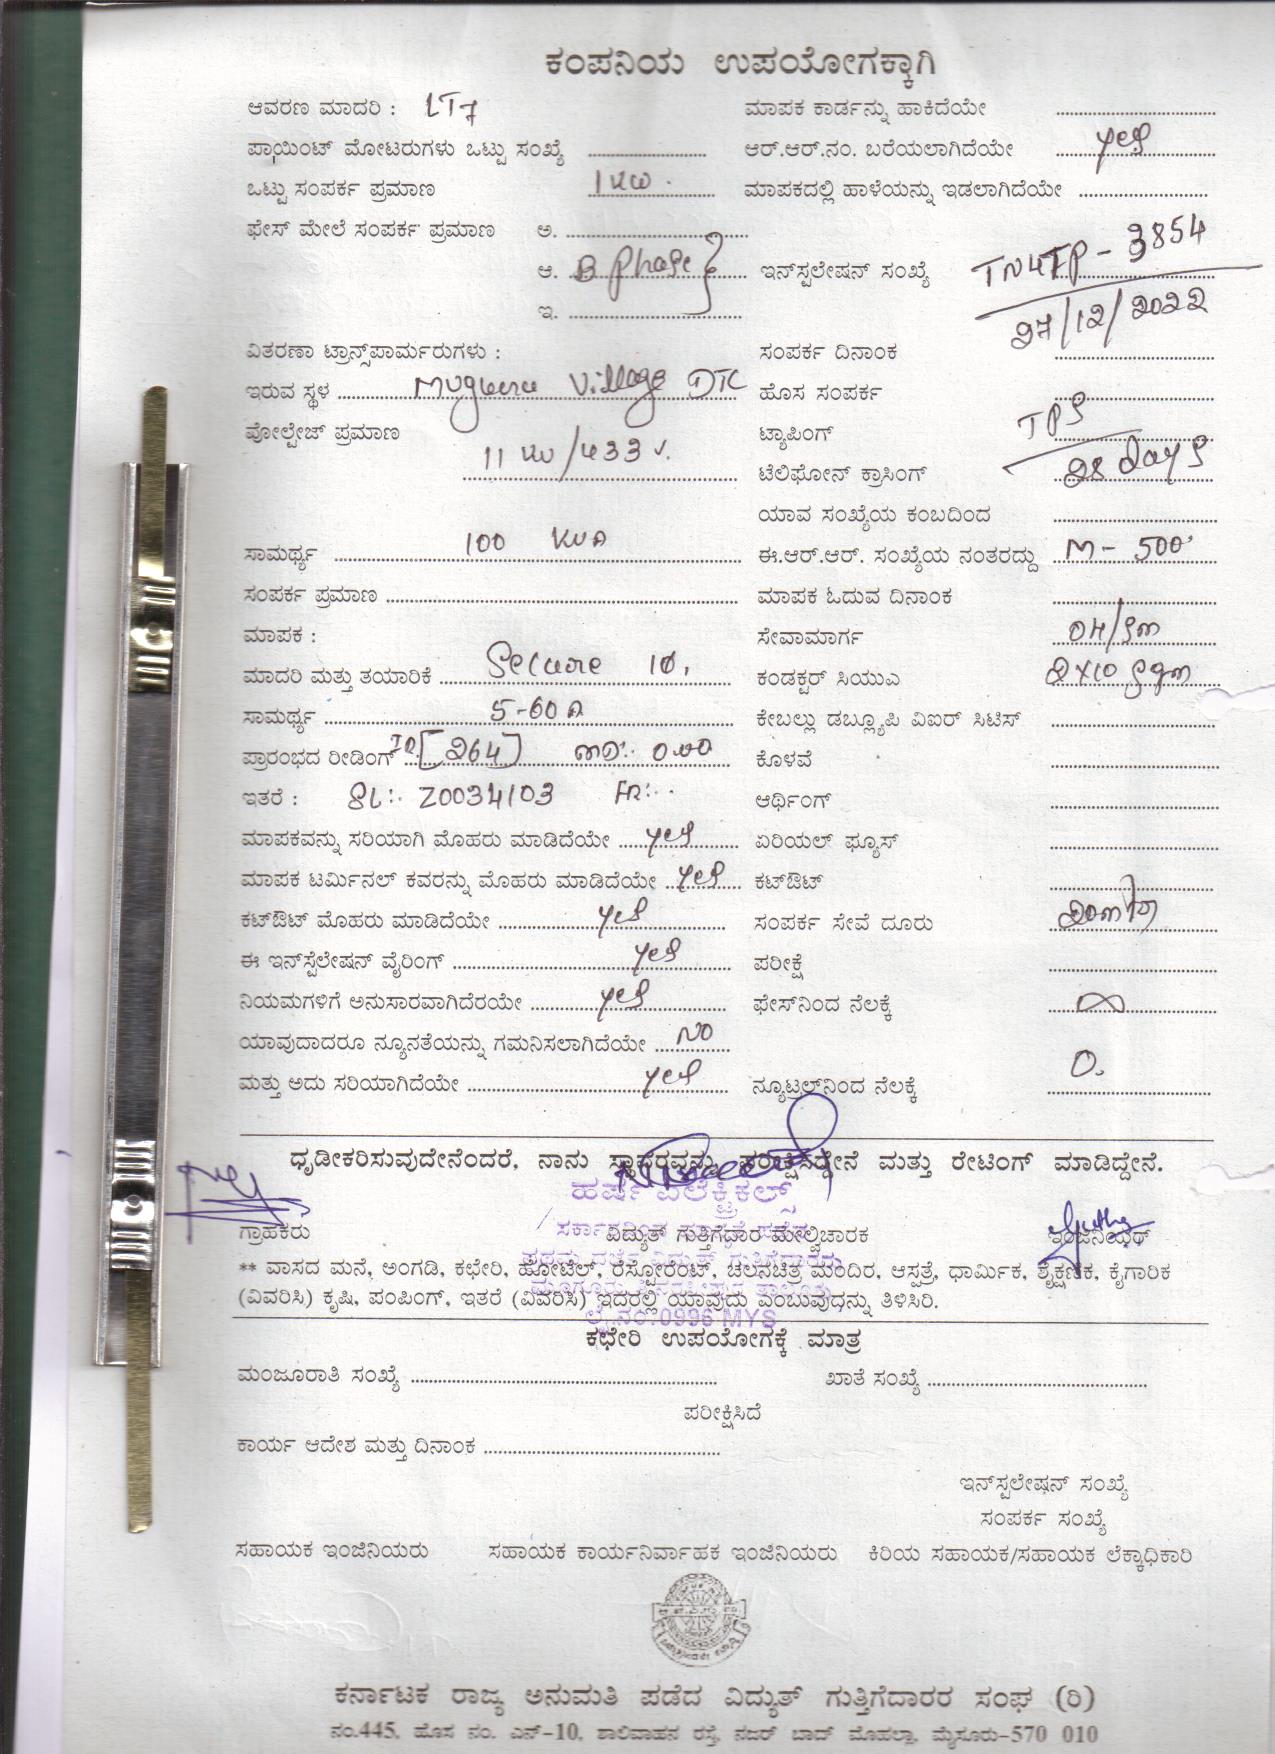 ಕಂಪನಿಯ ಉಪಯೋಗಕ್ಕಾಗಿ
ಆವರಣ ಮಾದರಿ : LT7 ಮಾಪಕ ಕಾರ್ಡನ್ನು ಹಾಕಿದೆಯೇ
ಪ್ರಾಯಿಂಟ್ ಮೋಟರುಗಳು ಒಟ್ಟು ಸಂಖ್ಯೆ ಆರ್.ಆರ್.ನಂ. ಬರೆಯಲಾಗಿದೆಯೇ yes
ಒಟ್ಟು ಸಂಪರ್ಕ ಪ್ರಮಾಣ 1 KW. ಮಾಪಕದಲ್ಲಿ ಹಾಳೆಯನ್ನು ಇಡಲಾಗಿದೆಯೇ
ಫೇಸ್ ಮೇಲೆ ಸಂಪರ್ಕ ಪ್ರಮಾಣ ಅ.
ಆ. B phase ಇನ್‌ಸ್ಟಲೇಷನ್ ಸಂಖ್ಯೆ TN4TP-3854
ಇ. 27/12/2022
ವಿತರಣಾ ಟ್ರಾನ್ಸ್‌ಪಾರ್ಮರುಗಳು : ಸಂಪರ್ಕ ದಿನಾಂಕ
ಇರುವ ಸ್ಥಳ Village DTC ಹೊಸ ಸಂಪರ್ಕ
ವೋಲ್ಟೇಜ್ ಪ್ರಮಾಣ ಟ್ಯಾಪಿಂಗ್ TPS
11 KV/433 V. ಟೆಲಿಫೋನ್ ಕ್ರಾಸಿಂಗ್ 28 days
ಯಾವ ಸಂಖ್ಯೆಯ ಕಂಬದಿಂದ
ಸಾಮರ್ಥ್ಯ 100 KVA ಈ.ಆರ್.ಆರ್. ಸಂಖ್ಯೆಯ ನಂತರದ್ದು M-500
ಸಂಪರ್ಕ ಪ್ರಮಾಣ ಮಾಪಕ ಓದುವ ದಿನಾಂಕ
ಮಾಪಕ : ಸೇವಾಮಾರ್ಗ OH/sm
ಮಾದರಿ ಮತ್ತು ತಯಾರಿಕೆ Secure 1ϕ, ಕಂಡಕ್ಟರ್ ಸಿಯುಎ 2x10 sqm
ಸಾಮರ್ಥ್ಯ 5-60 A ಕೇಬಲ್ಲು ಡಬ್ಲ್ಯೂಪಿ ವಿಐರ್ ಸಿಟಿಸ್
ಪ್ರಾರಂಭದ ರೀಡಿಂಗ್ IR [264] MD: 0.00 ಕೊಳವೆ
ಇತರೆ : SL: Z0034103 FR: ಆರ್ಥಿಂಗ್
ಮಾಪಕವನ್ನು ಸರಿಯಾಗಿ ಮೊಹರು ಮಾಡಿದೆಯೇ yes ಏರಿಯಲ್ ಫ್ಯೂಸ್
ಮಾಪಕ ಟರ್ಮಿನಲ್ ಕವರನ್ನು ಮೊಹರು ಮಾಡಿದೆಯೇ yes ಕಟ್‌ಔಟ್
ಕಟ್‌ಔಟ್ ಮೊಹರು ಮಾಡಿದೆಯೇ yes ಸಂಪರ್ಕ ಸೇವೆ ದೂರು
ಈ ಇನ್‌ಸ್ಟೆಲೇಷನ್ ವೈರಿಂಗ್ yes ಪರೀಕ್ಷೆ
ನಿಯಮಗಳಿಗೆ ಅನುಸಾರವಾಗಿದೆರಯೇ yes ಫೇಸ್‌ನಿಂದ ನೆಲಕ್ಕೆ ∞
ಯಾವುದಾದರೂ ನ್ಯೂನತೆಯನ್ನು ಗಮನಿಸಲಾಗಿದೆಯೇ NO
ಮತ್ತು ಅದು ಸರಿಯಾಗಿದೆಯೇ yes ನ್ಯೂಟ್ರಲ್‌ನಿಂದ ನೆಲಕ್ಕೆ 0.
ಧೃಡೀಕರಿಸುವುದೇನೆಂದರೆ, ನಾನು ಸ್ಥಾವರವನ್ನು ಪರೀಕ್ಷಿಸಿದ್ದೇನೆ ಮತ್ತು ರೇಟಿಂಗ್ ಮಾಡಿದ್ದೇನೆ.
ಹರ್ಷ ಎಲೆಕ್ಟ್ರಿಕಲ್ಸ್
ಗ್ರಾಹಕರು ವಿದ್ಯುತ್ ಗುತ್ತಿಗೆದಾರ ಮೇಲ್ವಿಚಾರಕ ಇಂಜಿನಿಯರ್
** ವಾಸದ ಮನೆ, ಅಂಗಡಿ, ಕಛೇರಿ, ಹೋಟೆಲ್, ರೆಸ್ಟೋರೆಂಟ್, ಚಲನಚಿತ್ರ ಮಂದಿರ, ಆಸ್ಪತ್ರೆ, ಧಾರ್ಮಿಕ, ಶೈಕ್ಷಣಿಕ, ಕೈಗಾರಿಕ
(ವಿವರಿಸಿ) ಕೃಷಿ, ಪಂಪಿಂಗ್, ಇತರೆ (ವಿವರಿಸಿ) ಇದರಲ್ಲಿ ಯಾವುದು ಎಂಬುವುಧನ್ನು ತಿಳಿಸಿರಿ.
ಲೈ.ನಂ:0996 MYS
ಕಛೇರಿ ಉಪಯೋಗಕ್ಕೆ ಮಾತ್ರ
ಮಂಜೂರಾತಿ ಸಂಖ್ಯೆ ಖಾತೆ ಸಂಖ್ಯೆ
ಪರೀಕ್ಷಿಸಿದೆ
ಕಾರ್ಯ ಆದೇಶ ಮತ್ತು ದಿನಾಂಕ
ಇನ್‌ಸ್ಟಲೇಷನ್ ಸಂಖ್ಯೆ
ಸಂಪರ್ಕ ಸಂಖ್ಯೆ
ಸಹಾಯಕ ಇಂಜಿನಿಯರು ಸಹಾಯಕ ಕಾರ್ಯನಿರ್ವಾಹಕ ಇಂಜಿನಿಯರು ಕಿರಿಯ ಸಹಾಯಕ/ಸಹಾಯಕ ಲೆಕ್ಕಾಧಿಕಾರಿ
ಕರ್ನಾಟಕ ರಾಜ್ಯ ಅನುಮತಿ ಪಡೆದ ವಿದ್ಯುತ್ ಗುತ್ತಿಗೆದಾರರ ಸಂಘ (ರಿ)
ನಂ.445, ಹೊಸ ನಂ. ಎನ್-10, ಶಾಲಿವಾಹನ ರಸ್ತೆ, ನಜರ್ ಬಾದ್ ಮೊಹಲ್ಲಾ, ಮೈಸೂರು-570 010